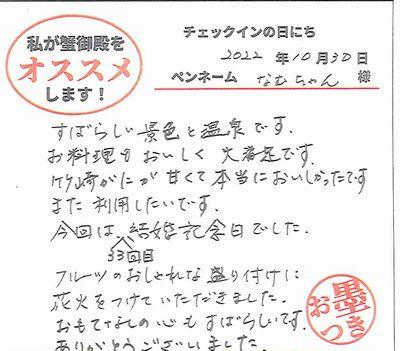 私が蟹御殿を
オススメ
します！
チェックインの日にち
2022 年 10 月 30 日
ペンネーム なむちゃん 様
すばらしい景色と温泉です.
お料理もおいしく大満足です.
竹崎がにが甘くて本当においしかったです
また利用したいです.
今回は、結婚記念日でした.
33回目
フルーツのおしゃれな盛り付けに
花火をつけていただきました.
おもてなしの心もすばらしいです.
ありがとうございました.
お墨つき